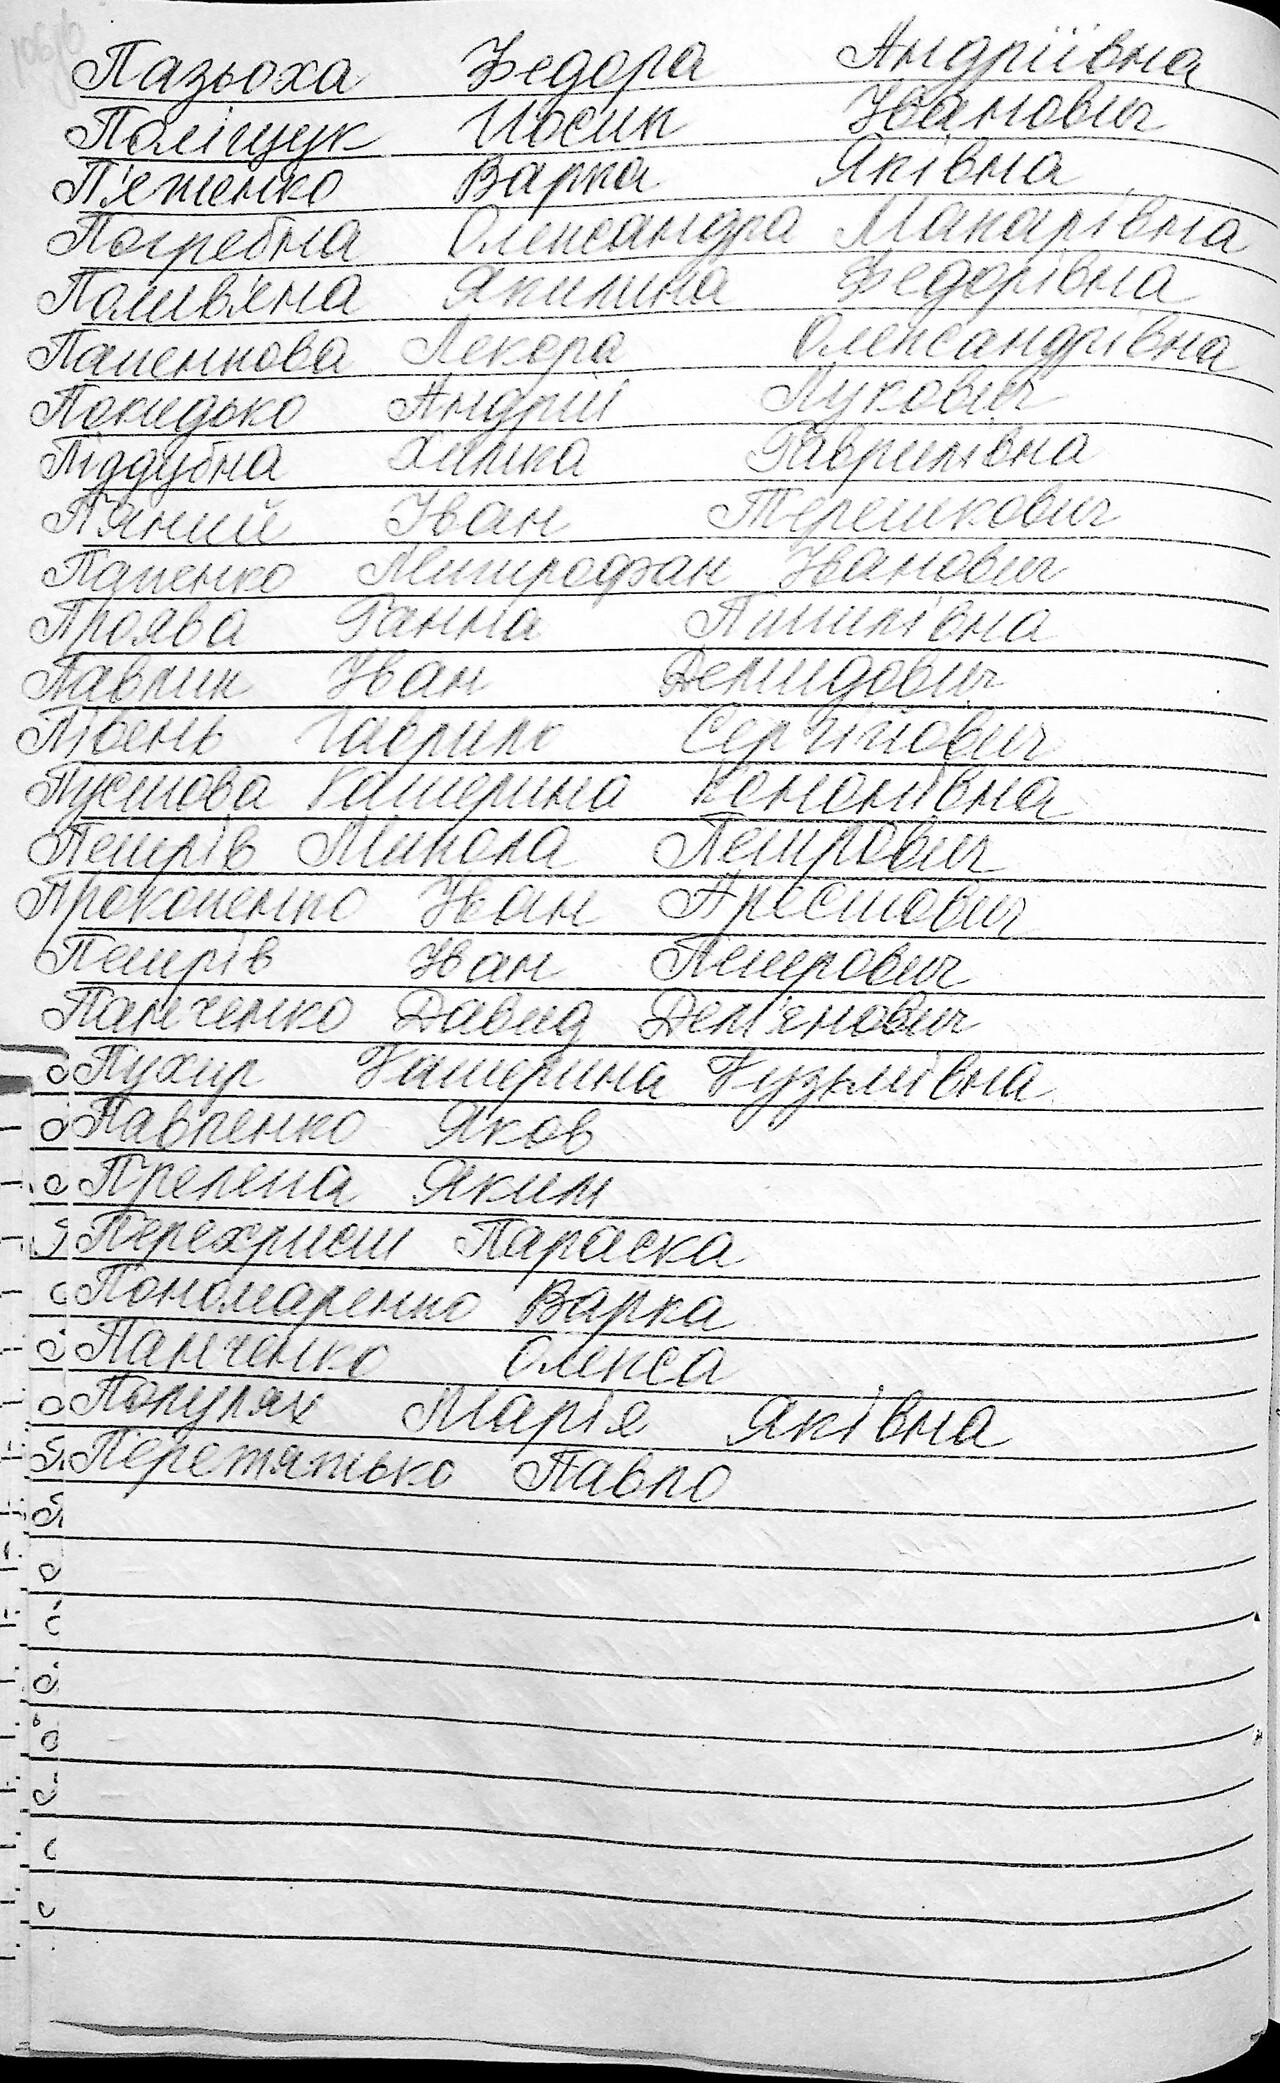 Пазьоха Федора Андріївна
Поліщук Йосип Іванович
П'яженко Варка Яківна
Погребна Олександра Макарівна
Полив'яна Якилина Федорівна
Лекера Олександрівна
Андрій Лукович
Піддубна Химка Гаврилівна
П'яний Іван Терешкович
Папенко Митрофан Іванович
Проява Ганна Пилипівна
Павлик Іван Демидович
Півень Гаврило Сергійович
Пустова Катерина Кононівна
Петрів Микола Петрович
Прокопенко Іван Арестович
Петрів Іван Петрович
Панченко Давид Дем'янович
Пухир Катерина Кузьмівна
Павленко Яков
Яким
Перехрист Параска
Пономаренко Варка
Панченко Олекса
Марія Яківна
Перетятько Павло